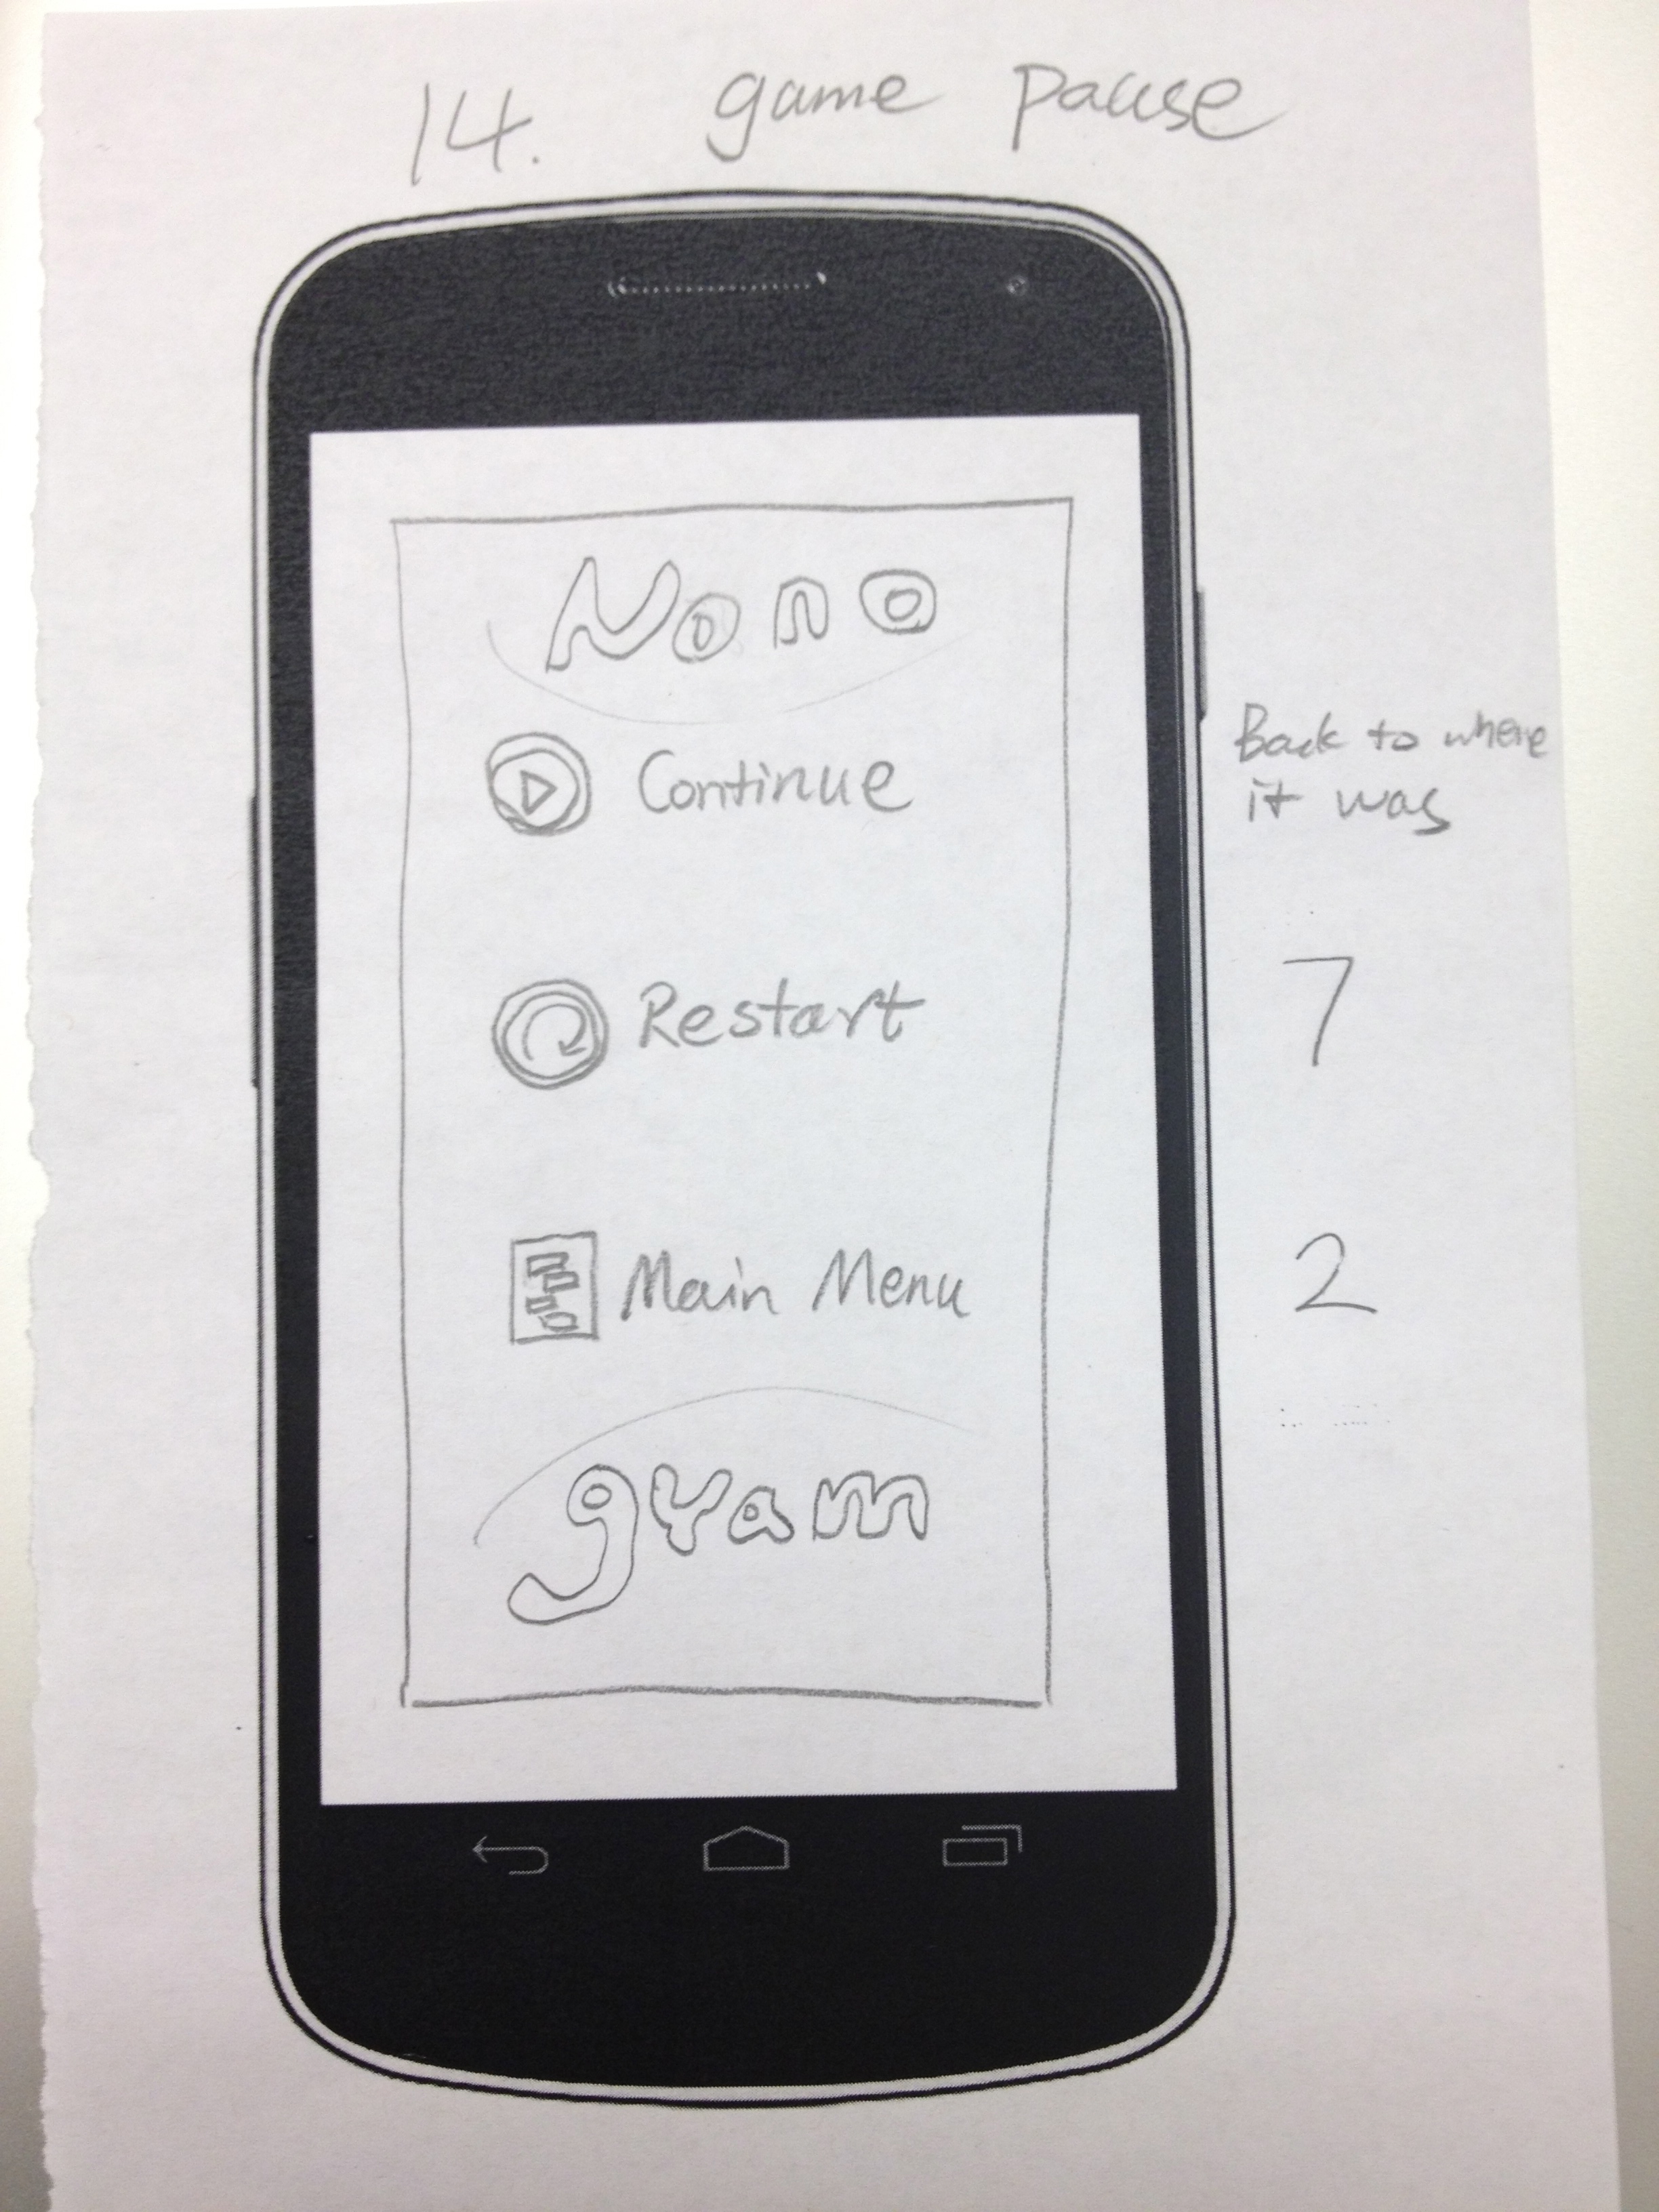 14. game pause
Nono
Continue
Back to where
it was
Restart
7
Main Menu
2
gram